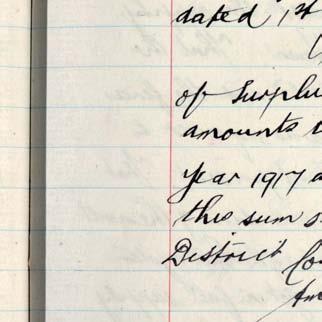 dated 1st
of Surplu
amounts
Year 1917 a
this sum s
District Co